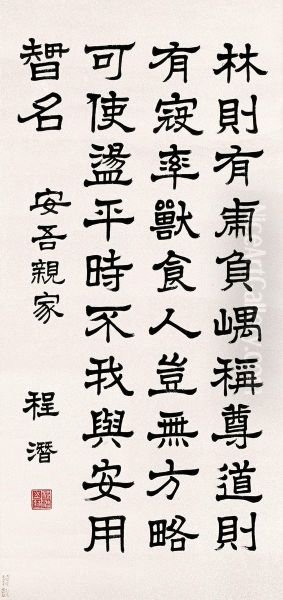 林則有虎負嵎稱尊道則
有寇率獸食人豈無方略
可使盪平時不我與安用
智名
安吾親家
程潛